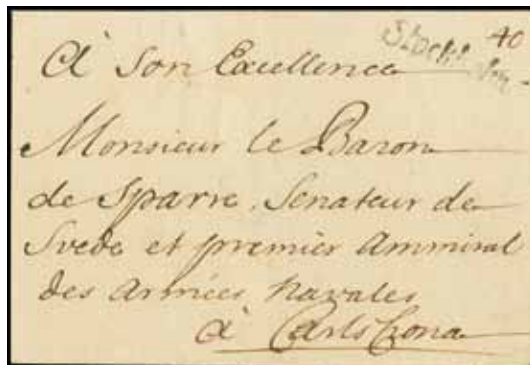 40
à Son Excellence
Monsieur le Baron
de Sparre, Senateur de
Svede et premier Ammiral
des Armées Navales
à Carls Crona